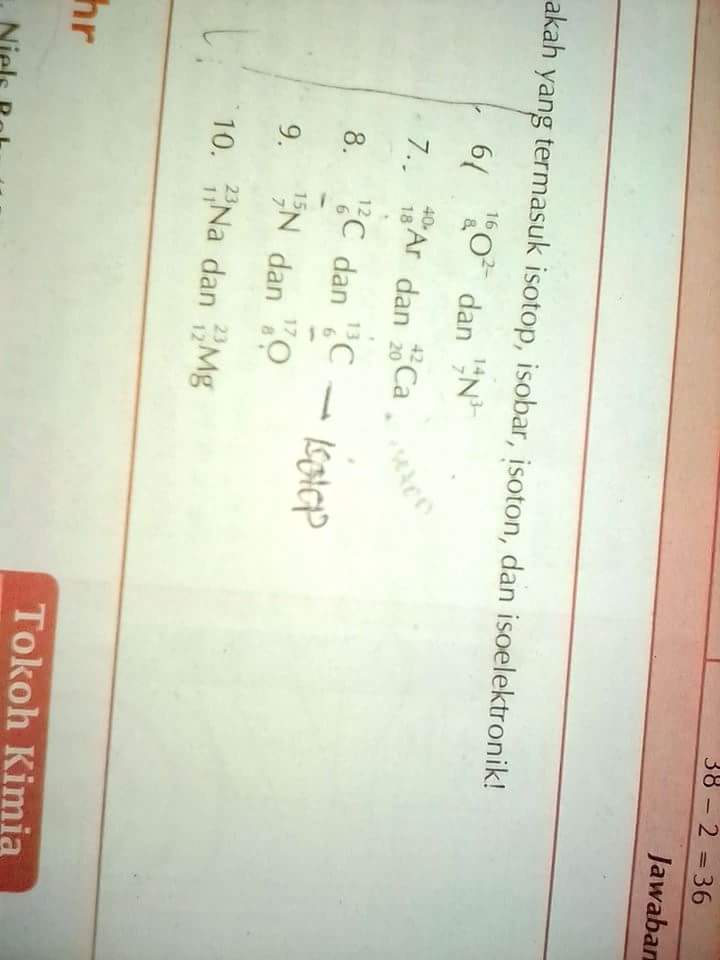 38 – 2 = 36
Jawaban
akah yang termasuk isotop, isobar, isoton, dan isoelektronik!
6. ¹⁶₈O²⁻ dan ¹⁴₇N³⁻
7. ⁴⁰₁₈Ar dan ⁴²₂₀Ca
8. ¹²₆C dan ¹³₆C → isotop
9. ¹⁵₇N dan ¹⁷₈O
10. ²³₁₁Na dan ²³₁₂Mg
hr
Tokoh Kimia
Niels